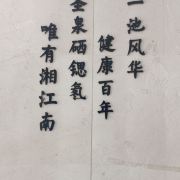 一池风华
健康百年
圣泉硒锶氡
唯有湘江南